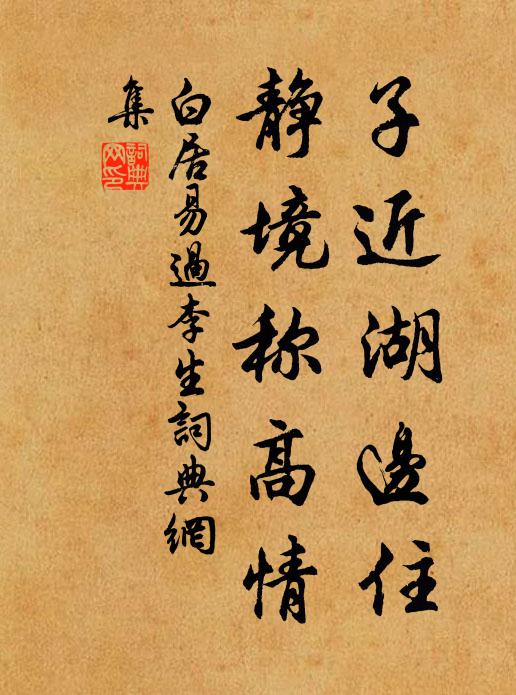 子近湖邊住
静境称高情
白居易過李生詞典網
集
詞典
网印